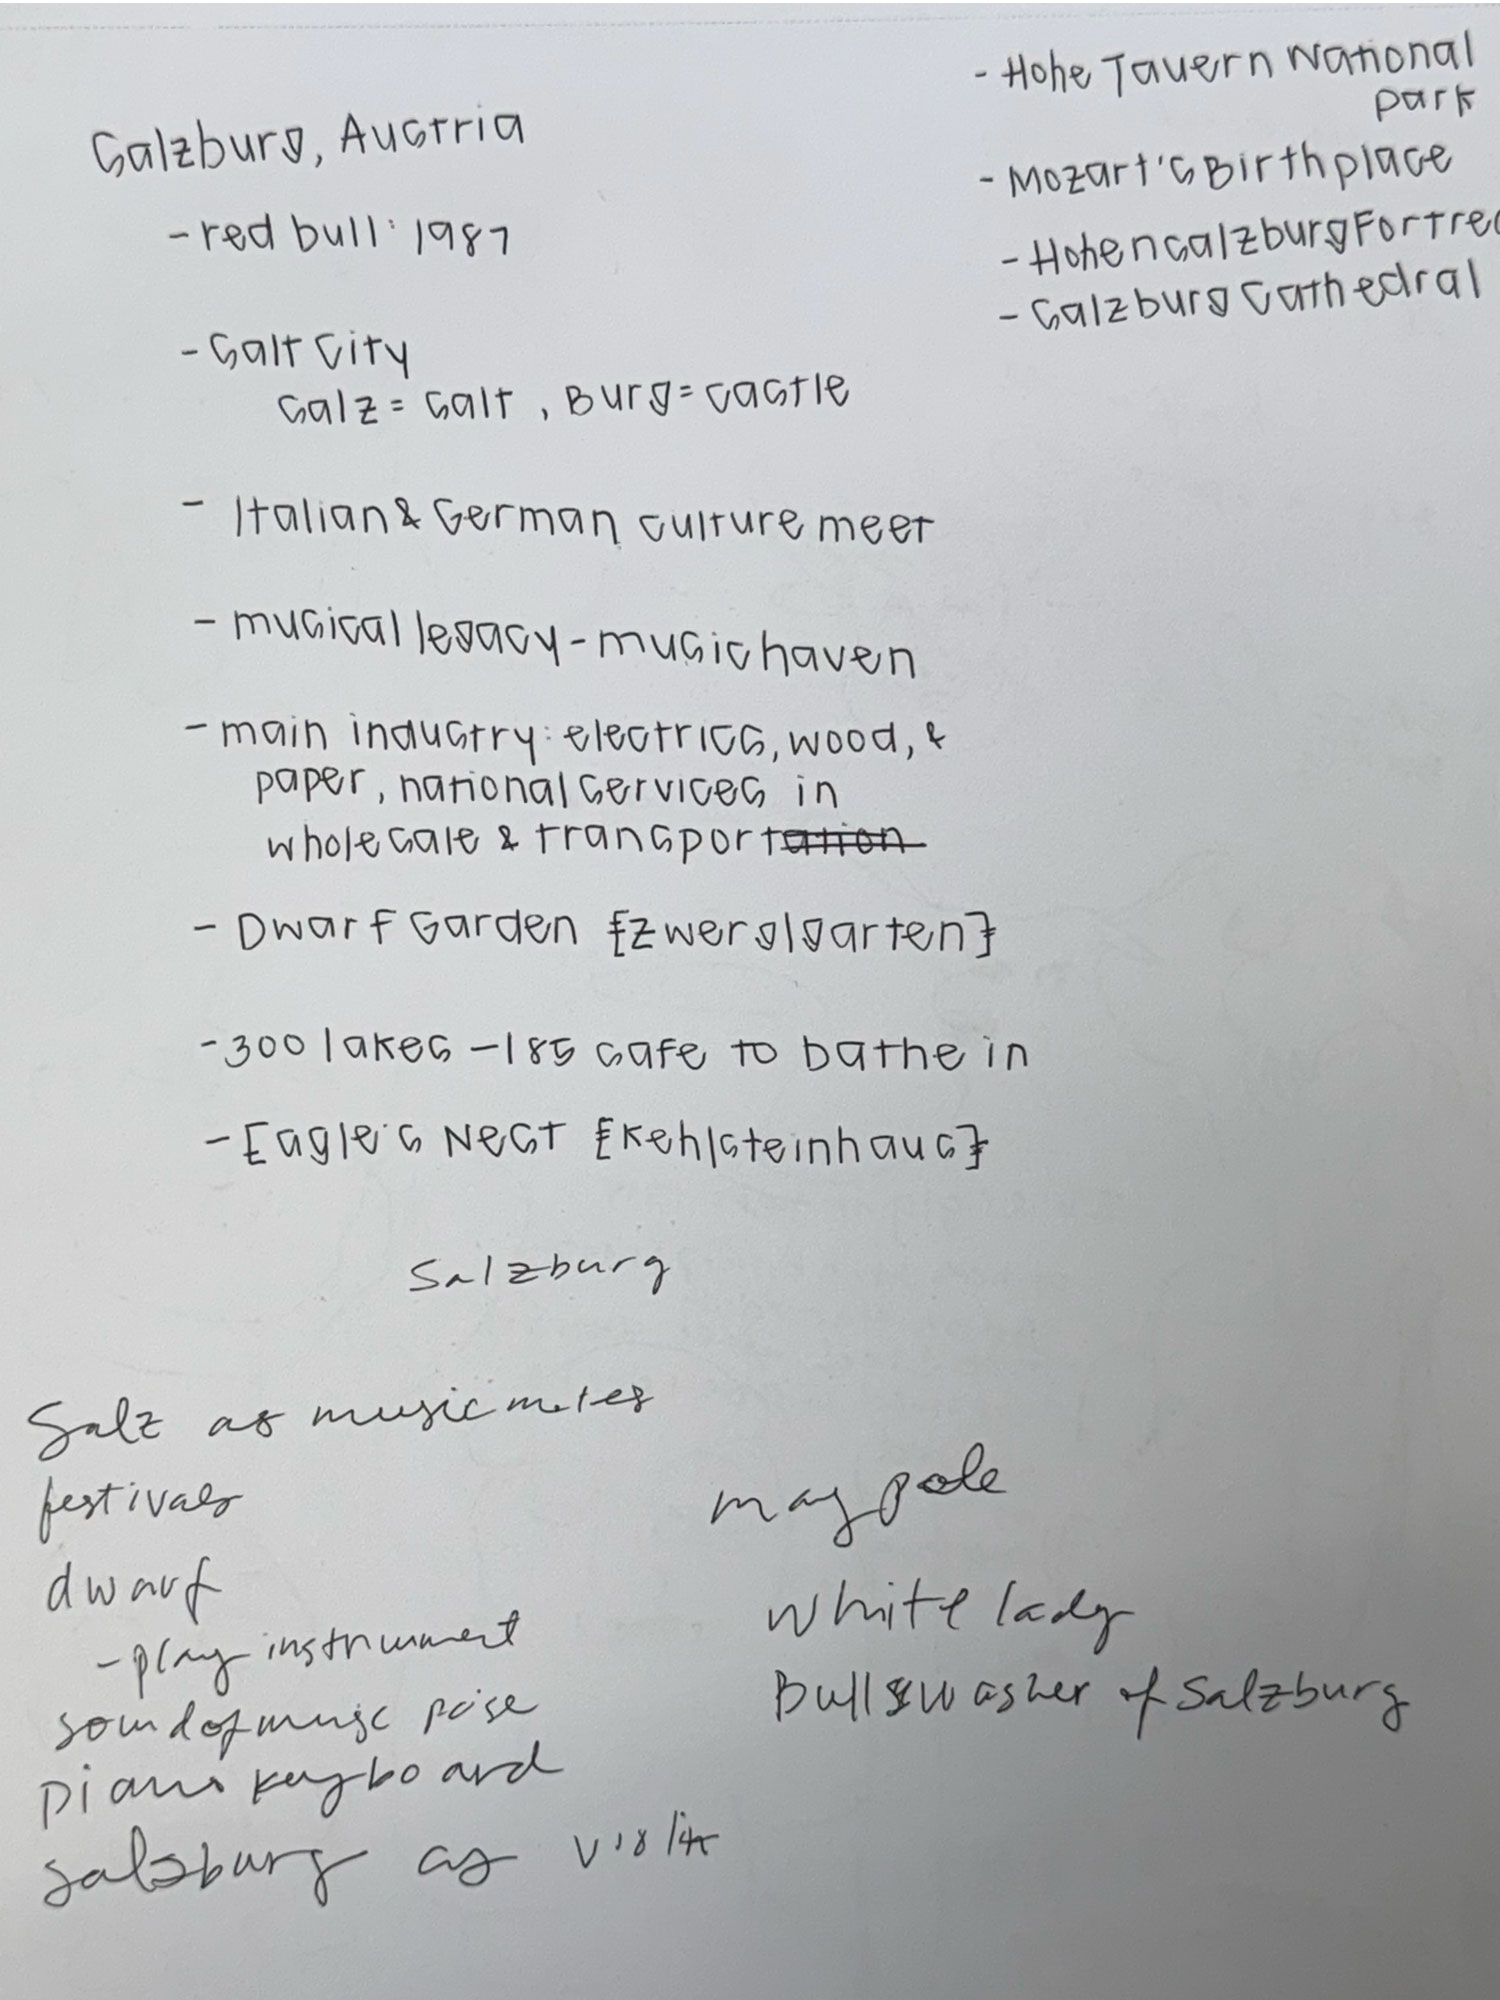 Salzburg, Austria
- red bull: 1987
- Salt City
Salz = Salt, Burg = castle
- Italian & German culture meet
- musical legacy - music haven
- main industry: electrics, wood, &
paper, national services in
wholesale & transportation
- Dwarf Garden {Zwerglgarten}
- 300 lakes - 185 safe to bathe in
- Eagle's Nest {Kehlsteinhaus}
- Hohe Tauern National
park
- Mozart's Birthplace
- Hohensalzburg Fortre
- Salzburg Cathedral
Salzburg
Salz as music notes
festivals
dwarf
- play instrument
sound of music poise
piano keyboard
Salzburg as
may pole
white lady
Bull washer of Salzburg